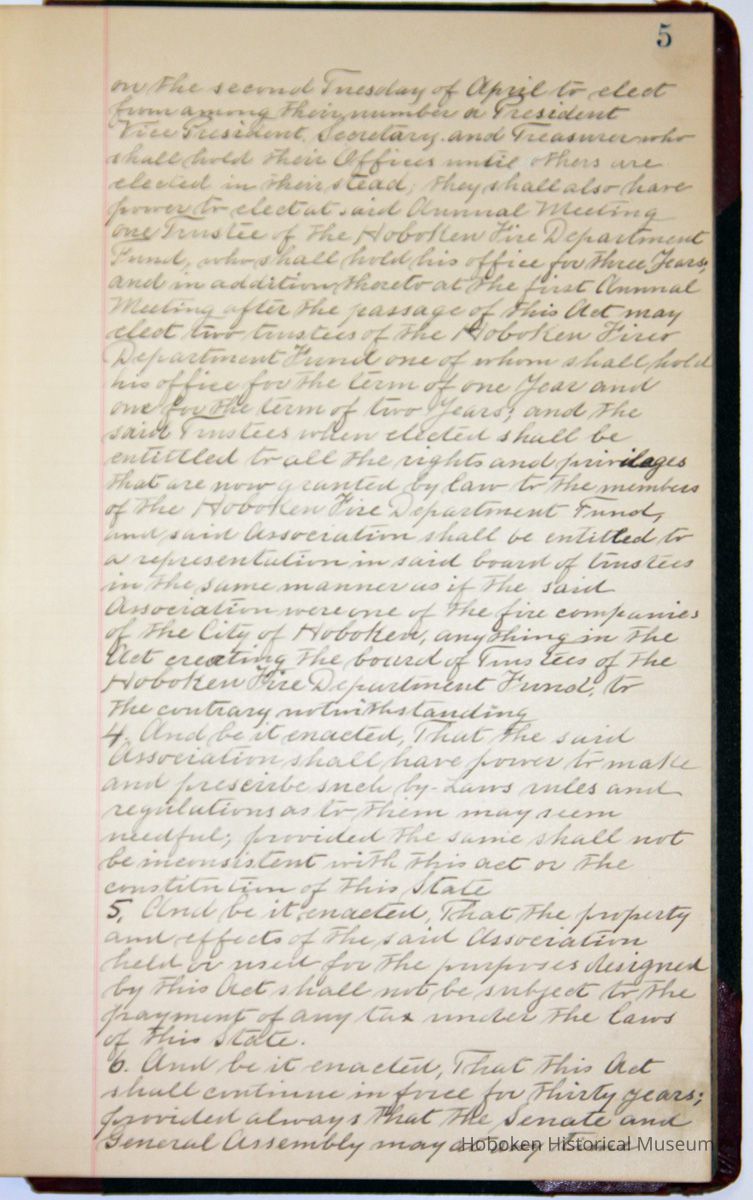 5
on the second Tuesday of April to elect
from among their number a President
Vice President, Secretary and Treasurer who
shall hold their Offices until others are
elected in their stead; they shall also have
power to elect at said Annual Meeting
one Trustee of the Hoboken Fire Department
Fund, who shall hold his office for three Years,
and in addition thereto at the first Annual
Meeting after the passage of this Act may
elect two trustees of the Hoboken Fire
Department Fund one of whom shall hold
his office for the term of one Year and
one for the term of two Years; and the
said Trustees when elected shall be
entittled to all the rights and privilages
that are now granted by law to the members
of the Hoboken Fire Department Fund,
and said Association shall be entitled to
a representation in said board of trustees
in the same manner as if the said
Association were one of the fire companies
of the City of Hoboken, anything in the
Act creating the board of Trustees of the
Hoboken Fire Department Fund, to
the contrary notwithstanding
4. And be it enacted, That the said
Association shall have power to make
and prescribe such by-Laws rules and
regulations as to them may seem
needful; provided the same shall not
be inconsistent with this act or the
constitution of this State
5. And be it enacted, That the property
and effects of the said Association
held or used for the purposes designed
by this Act shall not be subject to the
payment of any tax under the laws
of this State.
6. And be it enacted, That this Act
shall continue in force for thirty years;
provided always that the Senate and
General Assembly may at any time
Hoboken Historical Museum